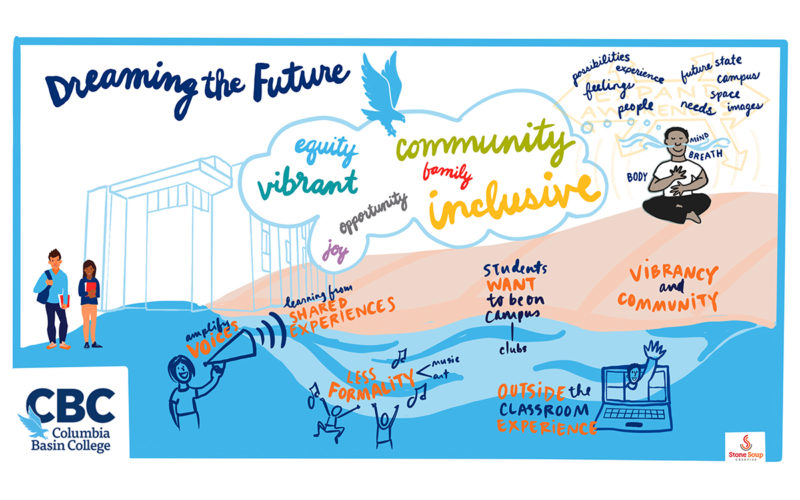 Dreaming the Future
equity
vibrant
community
family
inclusive
opportunity
joy
possibilities
experience
feelings
people
future state
campus
space
needs
images
EXPAND
AWARENESS
MIND
BREATH
BODY
amplify
VOICES
learning from
SHARED
EXPERIENCES
STUDENTS
WANT
to be on
CAMPUS
clubs
VIBRANCY
and
COMMUNITY
LESS
FORMALITY
music
art
OUTSIDE the
CLASSROOM
EXPERIENCE
CBC
Columbia
Basin College
Stone Soup
CREATIVE